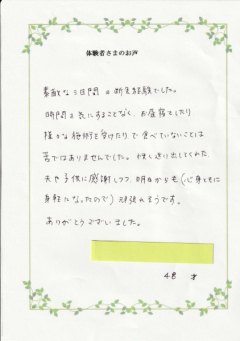 体験者さまのお声
素敵な3日間の断食経験でした。
時間を気にすることなく、お昼寝をしたり
様々な施術を受けたりで食べていないことは
苦ではありませんでした。快く送り出してくれた、
夫や子供に感謝しつつ、明日からも(心身ともに
身軽になったので)頑張れそうです。
ありがとうございました。
48才